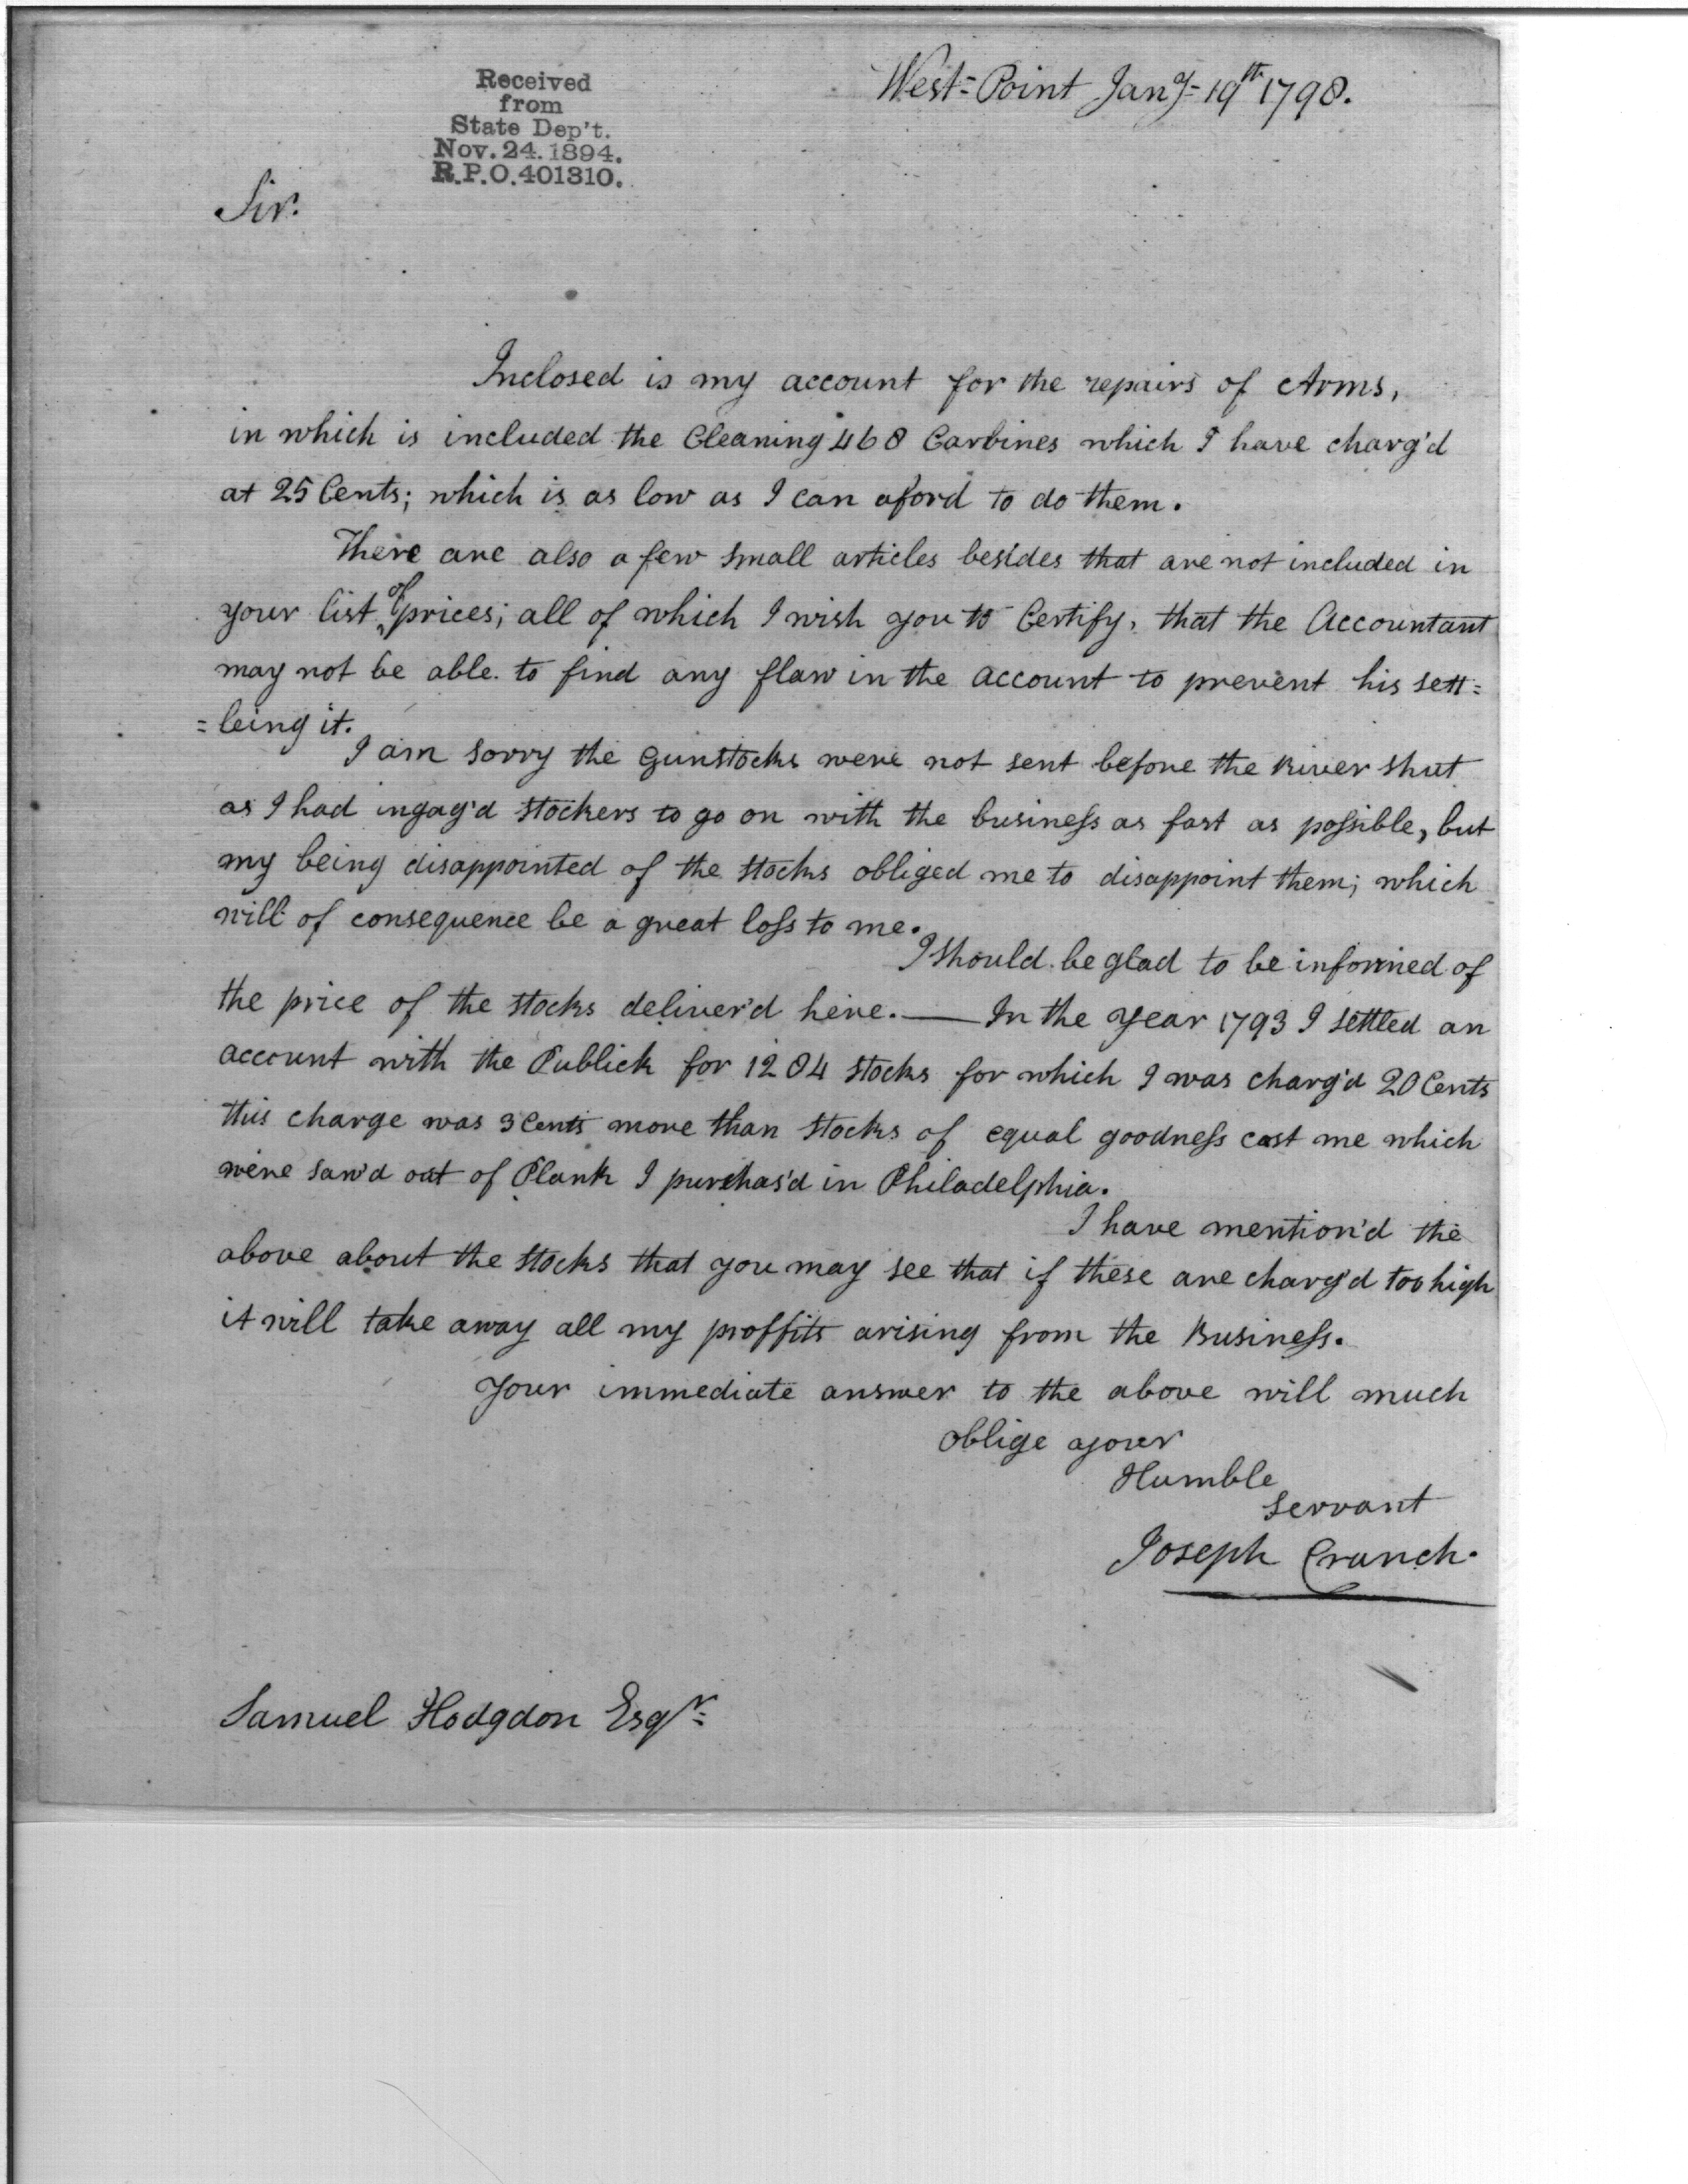 West=Point Jany= 19th 1798.
Received
from
State Dep't.
Nov. 24. 1894.
R.P.O. 401310.
Sir.
Inclosed is my account for the repairs of Arms,
in which is included the Cleaning 468 Carbines which I have charg'd
at 25 Cents; which is as low as I can aford to do them.
There are also a few small articles besides that are not included in
your list of prices; all of which I wish you to Certify, that the Accountant
may not be able to find any flaw in the account to prevent his sett=
=leing it.
I am sorry the Gunstocks were not sent before the River shut
as I had ingag'd stockers to go on with the business as fast as possible, but
my being disappointed of the stocks obliged me to disappoint them; which
will of consequence be a great loss to me.
I should be glad to be informed of
the price of the stocks deliver'd here.— In the Year 1793 I settled an
account with the Publick for 1284 stocks for which I was charg'd 20 Cents
this charge was 3 Cents more than stocks of equal goodness cost me which
were saw'd out of Plank I purchas'd in Philadelphia.
I have mention'd the
above about the stocks that you may see that if these are charg'd too high
it will take away all my proffits arising from the Business.
Your immediate answer to the above will much
oblige your
Humble
Servant
Joseph Cranch.
Samuel Hodgdon Esqr=